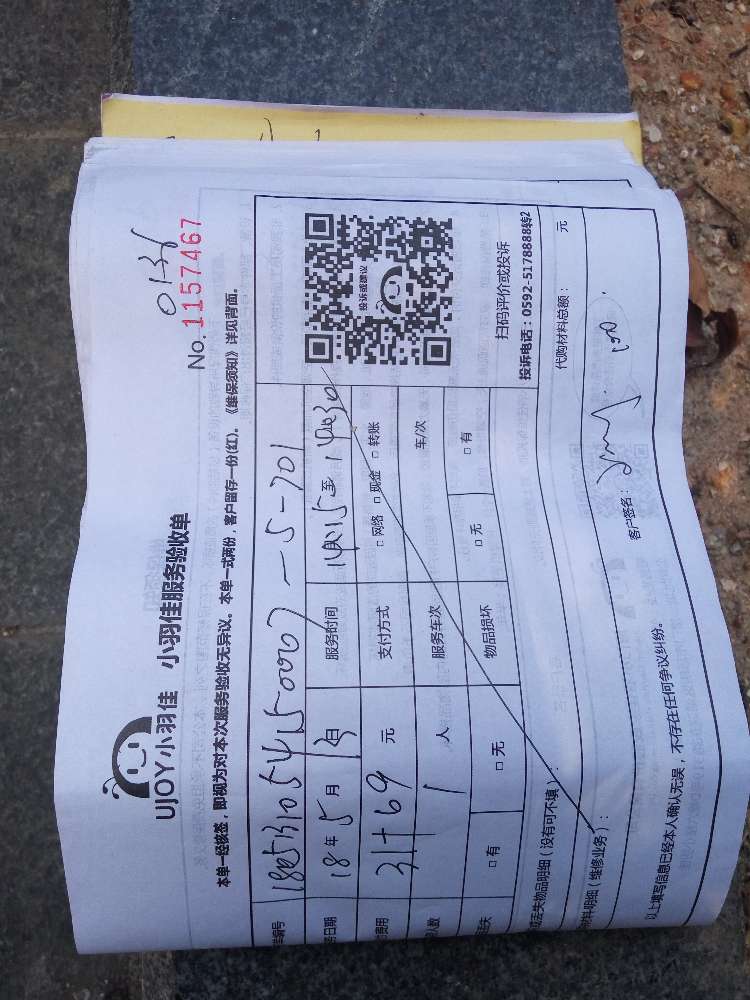 0136
No. 1157467
UJOY小羽佳 小羽佳服务验收单
本单一经核签，即视为对本次服务验收无异议。本单一式两份，客户留存一份(红)。《维保须知》详见背面。
编号
投诉或建议
日期 18年5月13日 服务时间 至
费用 31+69 元 支付方式 □ 网络 □ 现金 □ 转账
人数 1 人 服务车次 车/次
丢失 □ 有 □ 无 物品损坏 □ 无 □ 有
扫码评价或投诉
投诉电话：0592-5178888转2
或丢失物品明细（没有可不填）：
材料明细（维修业务）：
代购材料总额： 元
以上填写信息已经本人确认无误，不存在任何争议纠纷。
客户签名：